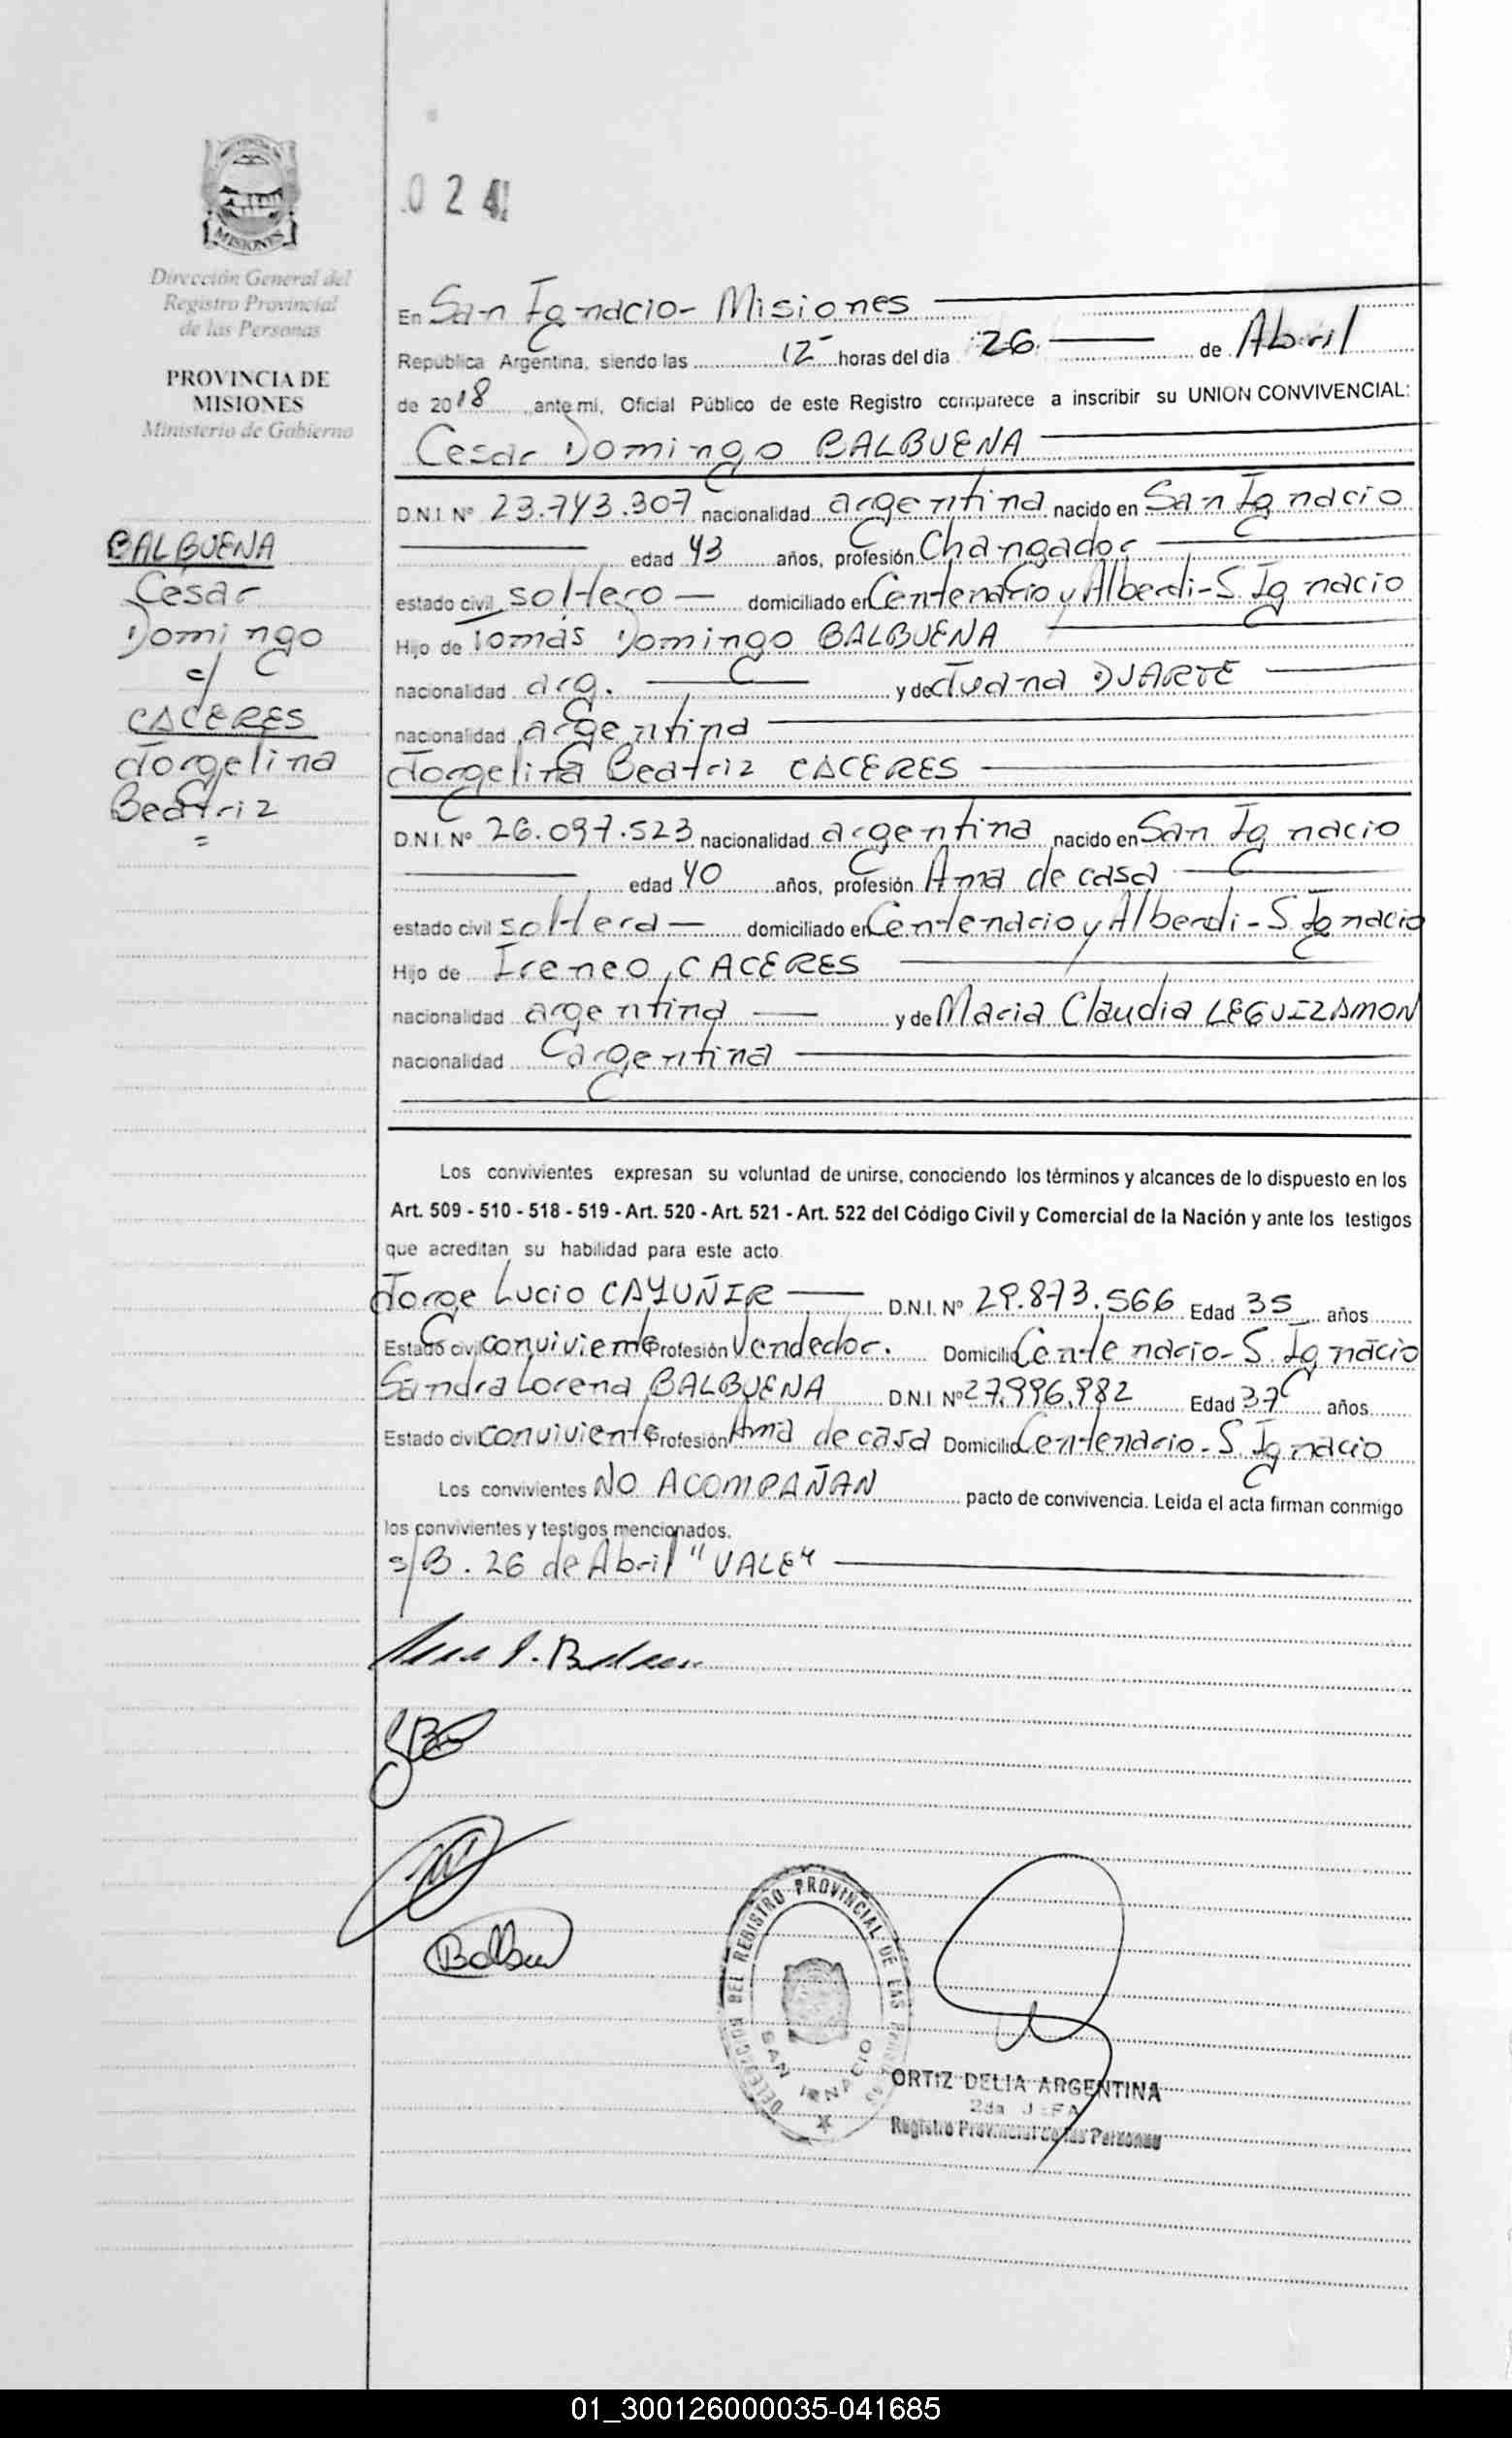 MISIONES
Dirección General del
Registro Provincial
de las Personas
PROVINCIA DE
MISIONES
Ministerio de Gobierno
BALBUENA
Cesar
Domingo
c/
CACERES
Jorgelina
Beatriz
=
024
En San Ignacio - Misiones
Republica Argentina, siendo las 12 horas del dia 26 de Abril
de 2018 ante mi, Oficial Público de este Registro comparece a inscribir su UNION CONVIVENCIAL:
Cesar Domingo BALBUENA
D.N.I. Nº 23.743.307 nacionalidad argentina nacido en San Ignacio
edad 43 años, profesión Changador
estado civil soltero domiciliado en Centenario y Alberdi - S. Ignacio
Hijo de Tomás Domingo BALBUENA
nacionalidad arg. y de Juana DUARTE
nacionalidad argentina
Jorgelina Beatriz CACERES
D.N.I. Nº 26.097.523 nacionalidad argentina nacido en San Ignacio
edad 40 años, profesión Ama de casa
estado civil soltera domiciliado en Centenario y Alberdi - S. Ignacio
Hijo de Ireneo CACERES
nacionalidad argentina y de Maria Claudia LEGUIZAMON
nacionalidad argentina
Los convivientes expresan su voluntad de unirse, conociendo los términos y alcances de lo dispuesto en los
Art. 509 - 510 - 518 - 519 - Art. 520 - Art. 521 - Art. 522 del Código Civil y Comercial de la Nación y ante los testigos
que acreditan su habilidad para este acto
Jorge Lucio CAYUÑIR D.N.I. Nº 29.873.566 Edad 35 años
Estado civil conviviente Profesión Vendedor. Domicilio Centenario - S. Ignacio
Sandra Lorena BALBUENA D.N.I Nº 27.996.982 Edad 37 años
Estado civil conviviente Profesión Ama de casa Domicilio Centenario - S. Ignacio
Los convivientes NO ACOMPAÑAN pacto de convivencia. Leida el acta firman conmigo
los convivientes y testigos mencionados.
s/B. 26 de Abril "VALE"
DELEGACION DEL REGISTRO PROVINCIAL DE LAS PERSONAS
SAN IGNACIO
ORTIZ DELIA ARGENTINA
2da JEFA
Registro Provincial de las Personas
01_300126000035-041685